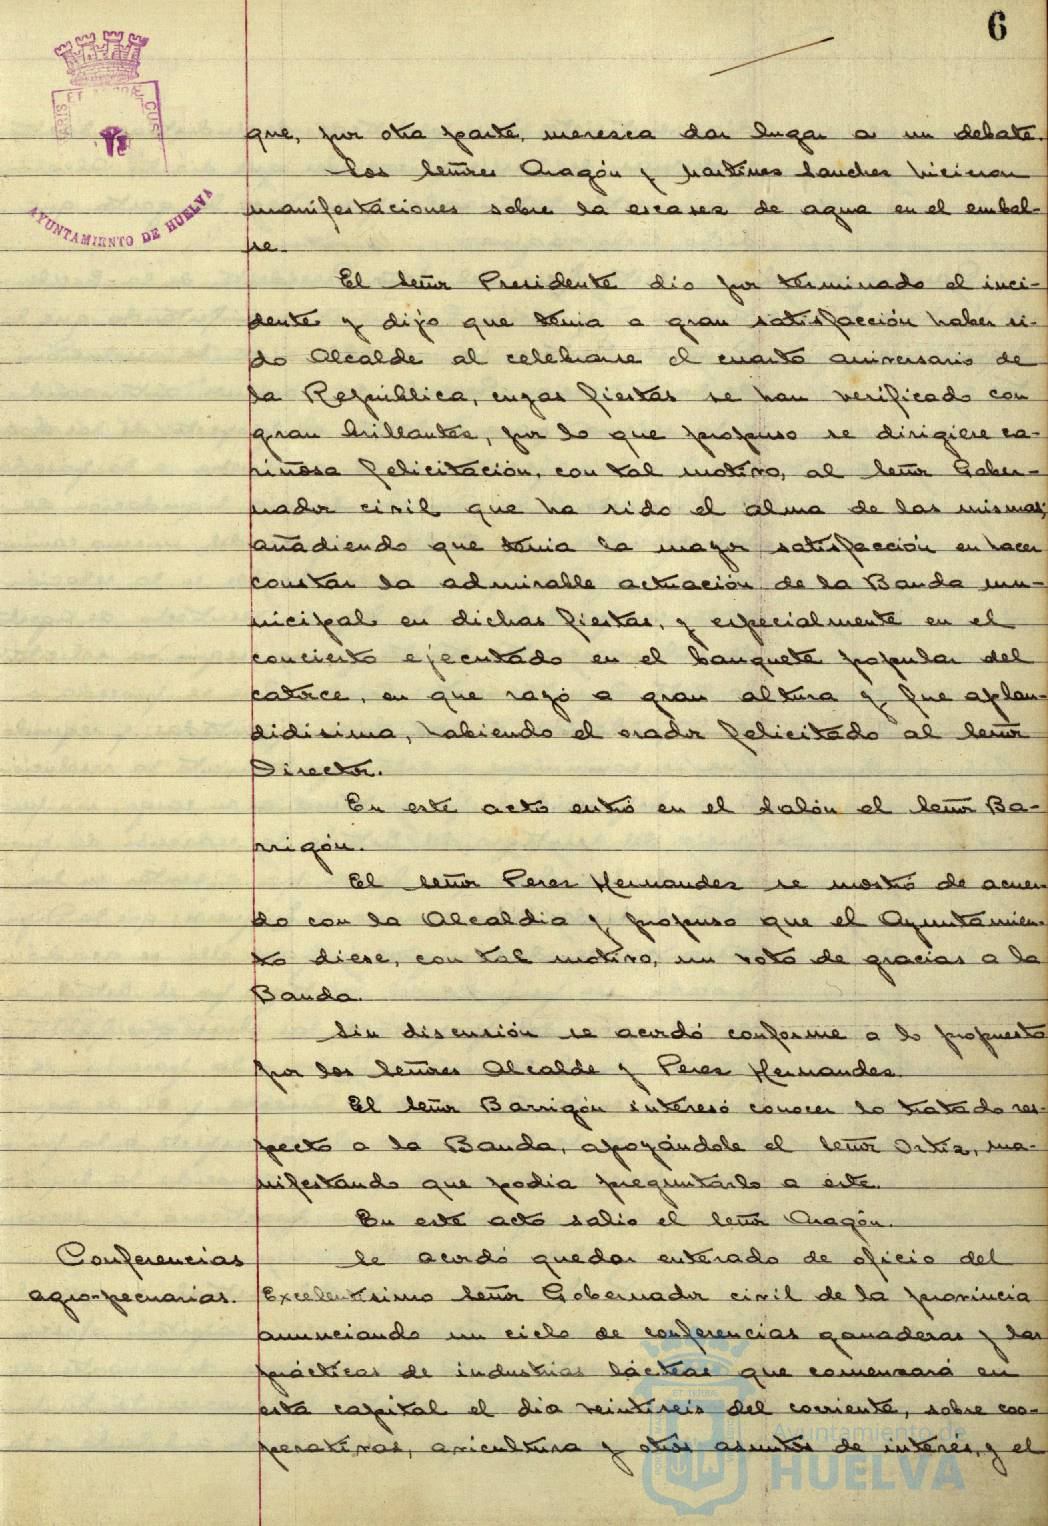 6
AYUNTAMIENTO DE HUELVA
que, por otra parte, meresca dar lugar a un debate.
Los señores Aragón y Martínes Sanches hicieron
manifestaciones sobre la escases de agua en el embal-
se.
El señor Presidente dio por terminado el inci-
dente y dijo que tenia a gran satisfacción haber si-
do Alcalde al celebrarse el cuarto aniversario de
la República, cuyas fiestas se han verificado con
gran brillantés, por lo que propuso se dirigiese ca-
riñosa felicitación, con tal motivo, al señor Gober-
nador civil que ha sido el alma de las mismas;
añadiendo que tenia la mayor satisfacción en hacer
constar la admirable actuación de la Banda mu-
nicipal en dichas fiestas, y especialmente en el
concierto ejecutado en el banquete popular del
catorce, en que rayó a gran altura y fue aplau-
didisima, habiendo el orador felicitado al señor
Director.
En este acto entró en el salón el señor Ba-
rrigón.
El señor Peres Hernandez se mostró de acuer-
do con la Alcaldia y propuso que el Ayuntamien-
to diese, con tal motivo, un voto de gracias a la
Banda.
Sin discusión se acordó conforme a lo propuesto
por los señores Alcalde y Peres Hernandes.
El señor Barrigón interesó conocer lo tratado res-
pecto a la Banda, apoyándole el señor Ortíz, ma-
nifestando que podia preguntarlo a este.
En este acto salio el señor Aragón.
Conferencias
agro-pecuarias.
Se acordó quedar enterado de oficio del
Excelentísimo señor Gobernador civil de la provincia
anunciando un ciclo de conferencias ganaderas y las
prácticas de industrias lácteas que comensará en
esta capital el dia veintiseis del corriente, sobre coo-
perativas, avicultura y otros asuntos de interés, y el
Ayuntamiento de
HUELVA